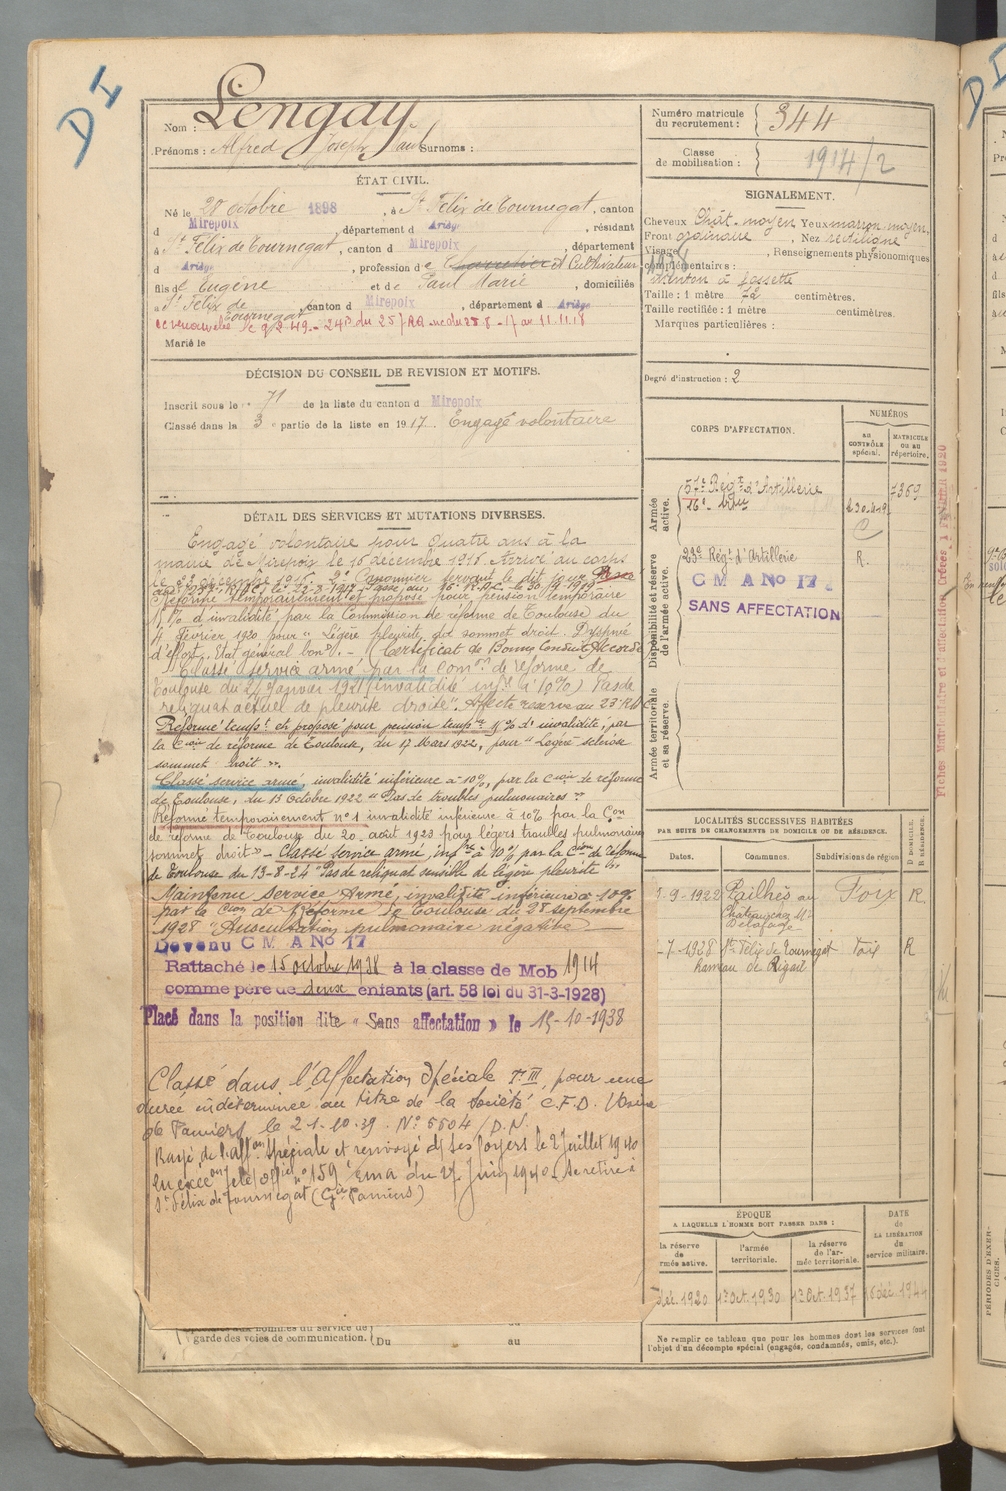 D I
Nom : Lengay
Prénoms : Alfred Joseph Paul Surnoms :
Numéro matricule du recrutement : 344
Classe de mobilisation : 1914/2
ÉTAT CIVIL.
Né le 20 octobre 1898, à St Félix de Tournegat, canton
d Mirepoix, département d Ariège, résidant
à St Félix de Tournegat, canton d Mirepoix, département
d Ariège, profession de et Cultivateur
fils de Eugène et de Paul Marie, domiciliés
à St Félix de Tournegat, canton d Mirepoix, département d Ariège
Marié le
DÉCISION DU CONSEIL DE REVISION ET MOTIFS.
Inscrit sous le n° 71 de la liste du canton d Mirepoix
Classé dans la 3e partie de la liste en 1917. Engagé volontaire
DÉTAIL DES SERVICES ET MUTATIONS DIVERSES.
Engagé volontaire pour quatre ans à la
mairie de Mirepoix le 16 décembre 1916 Arrivé au corps
Réformé temporairement et proposé pour pension temporaire
% d'invalidité, par la Commission de réforme de Toulouse du
4 Février 1920 pour "Légère pleurite du sommet droit. Dyspnée
d'effort. Etat général bon". - (Certificat de Bonne Conduite Accordé
Classé service armé par la Comon de réforme de
Toulouse du 24 Janvier 1921 (invalidité infre à 10%) Pas de
reliquat actuel de pleurite droite. Affecté réserve au 23e RAC
Réformé tempt et proposé pour pension tempre % d'invalidité, par
la Cion de réforme de Toulouse, du 17 Mars 1922, pour "Légère sclérose
sommet droit".
Classé service armé, invalidité inférieure à 10%, par la Cion de réforme
de Toulouse, du 13 Octobre 1922 "Pas de troubles pulmonaires"
Réformé temporairement n°1 invalidité inférieure à 10% par la Con
de réforme de Toulouse du 20 août 1923 pour légers troubles pulmonaires
sommet droit" - Classé service armé, infre à 10% par la Cion de réforme
de Toulouse du 13-8-24 "Pas de reliquat sensible de légère pleurite"
Maintenu Service Armé, invalidité inférieure à 10%
par la Cion de Réforme de Toulouse du 28 septembre
1928 "Auscultation pulmonaire négative
Devenu C M A No 17
Rattaché le 15 octobre 1938 à la classe de Mob 1914
comme père de deux enfants (art. 58 loi du 31-3-1928)
Placé dans la position dite « Sans affectation » le 15-10-1938
Classé dans l'Affectation Spéciale T. III, pour une
durée indéterminée au titre de la Société C.F.D. Usine
de Pamiers le 21-10-39. N° 5504/D.N.
Rayé de l'affon Spéciale et renvoyé ds ses foyers le 2 Juillet 1940
en exéc on télé officiel n° 159 EMA du 27 Juin 1940 - Se retire à
St Félix de Tournegat (Cie Pamiers)
garde des voies de communication. Du au
SIGNALEMENT.
Cheveux Chât. moyen Yeux marron moyen.
Front ordinaire, Nez rectiligne
Visage, Renseignements physionomiques
complémentaires :
Menton à fossette
Taille : 1 mètre 72 centimètres.
Taille rectifiée : 1 mètre centimètres.
Marques particulières :
Degré d'instruction : 2
CORPS D'AFFECTATION.
NUMÉROS
AU CONTRÔLE spécial.
MATRICULE OU AU répertoire.
Armée active.
57e Régt d'Artillerie 7369
Disponibilité et réserve de l'armée active.
23e Régt d'Artillerie R.
C M A No 17
SANS AFFECTATION
Armée territoriale et sa réserve.
LOCALITÉS SUCCESSIVES HABITÉES
PAR SUITE DE CHANGEMENTS DE DOMICILE OU DE RÉSIDENCE.
Dates. Communes. Subdivisions de région. D DOMICILE. R RÉSIDENCE.
-9-1922 Pailhès au Foix R.
Château chez Mr Delafage
-7-1928 St Félix de Tournegat Foix R
hameau de Rigail
ÉPOQUE
A LAQUELLE L'HOMME DOIT PASSER DANS :
la réserve de l'armée active.
l'armée territoriale.
la réserve de l'armée territoriale.
DATE de LA LIBÉRATION du service militaire.
déc. 1920 1er Oct. 1930 1er Oct. 1937 16 déc. 194
Ne remplir ce tableau que pour les hommes dont les services font
l'objet d'un décompte spécial (engagés, condamnés, omis, etc.).
PÉRIODES D'EXERCICES.